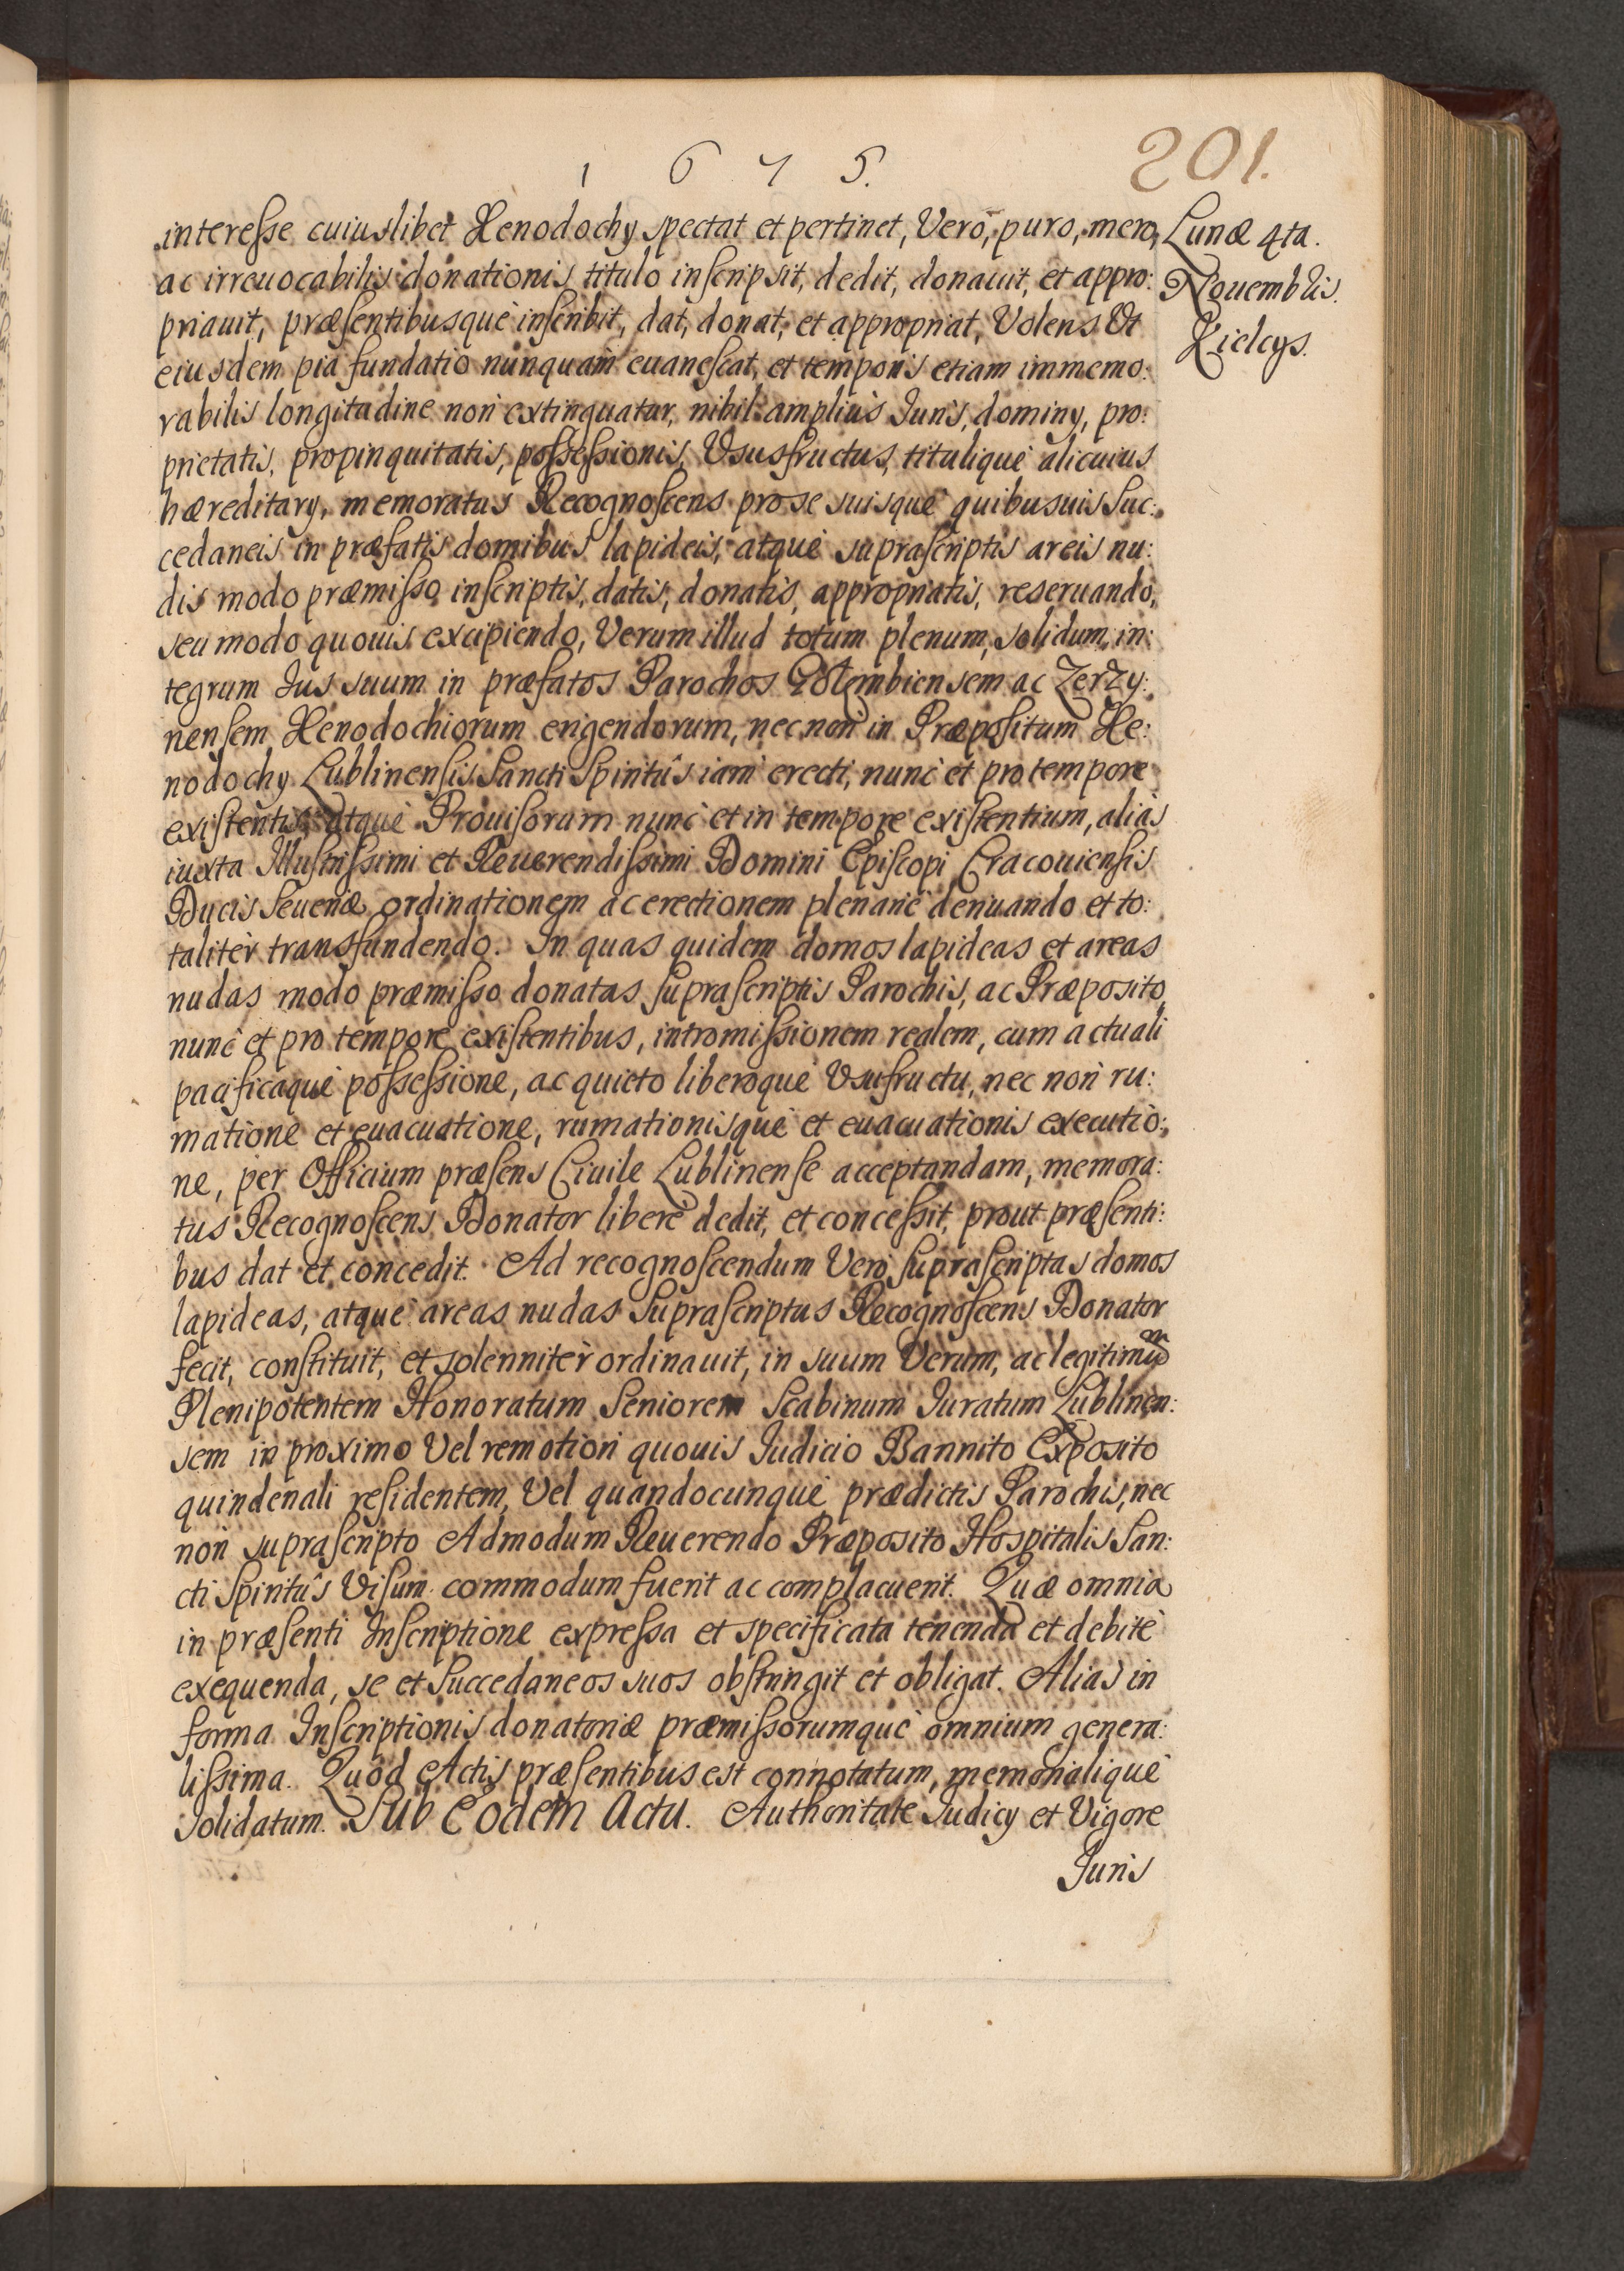 1 6 7 5.
201.
interesse cuiuslibet Xenodochy spectat et pertinet, Vero, puro, mero,
ac irreuocabilis donationis titulo inscripsit, dedit, donauit, et appro:
priauit, præsentibusque inscribit, dat, donat, et appropriat, Volens Vt
eiusdem pia fundatio nunquam euanescat, et temporis etiam immemo:
rabilis longitudine non extinguatur, nihil amplius Iuris, dominy, pro:
prietatis, propinquitatis, possessionis, Vsusfructus, titulique alicuius
hæreditary, memoratus Recognoscens pro se suisque quibusuis suc:
cedaneis in præfatis domibus lapideis, atque suprascriptis areis nu:
dis modo præmisso inscriptis, datis, donatis, appropriatis, reseruando,
seu modo quouis excipiendo, Verum illud totum plenum, solidum, in:
tegrum Ius suum in præfatos Parochos Gołembiensem ac Zerzy:
nensem Xenodochiorum erigendorum, nec non in Præpositum Xe:
nodochy Lublinensis Sancti Spiritûs iam erecti, nunc et pro tempore
existentis, atque Prouisorum nunc et in tempore existentium, alias
iuxta Illustrissimi et Reuerendissimi Domini Episcopi Cracouiensis
Ducis Seueriæ ordinationem ac erectionem plenarie deriuando et to:
taliter transfundendo. In quas quidem domos lapideas et areas
nudas modo præmisso donatas suprascriptis Parochis, ac Præposito,
nunc et pro tempore existentibus, intromissionem realem, cum actuali
pacificaque possessione, ac quieto liberoque Vsufructu, nec non ru:
matione et euacuatione, rumationisque et euacuationis executio:
ne, per Officium præsens Ciuile Lublinense acceptandam, memora:
tus Recognoscens Donator libere dedit, et concessit, prout præsenti:
bus dat et concedit. Ad recognoscendum Vero suprascriptas domos
lapideas, atque areas nudas Suprascriptus Recognoscens Donator
fecit, constituit, et solenniter ordinauit, in suum Verum, ac legitimum
Plenipotentem Honoratum Seniorem Scabinum Iuratum Lublinen:
sem in proximo Vel remotiori quouis Iudicio Bannito Exposito
quindenali residentem, Vel quandocunque prædictis Parochis, nec
non suprascripto Admodum Reuerendo Præposito Hospitalis San:
cti Spiritûs Visum commodum fuerit ac complacuerit. Quæ omnia
in præsenti Inscriptione expressa et specificata tenenda et debite
exequenda, se et Succedaneos suos obstringit et obligat. Alias in
forma Inscriptionis donatoriæ præmissorumque omnium genera:
lissima. Quod Actis præsentibus est connotatum, memorialique
solidatum. Sub Eodem Actu. Authoritate Iudicy et Vigore
Iuris
Lunæ 4ta.
Nouembris.
Kielcys.